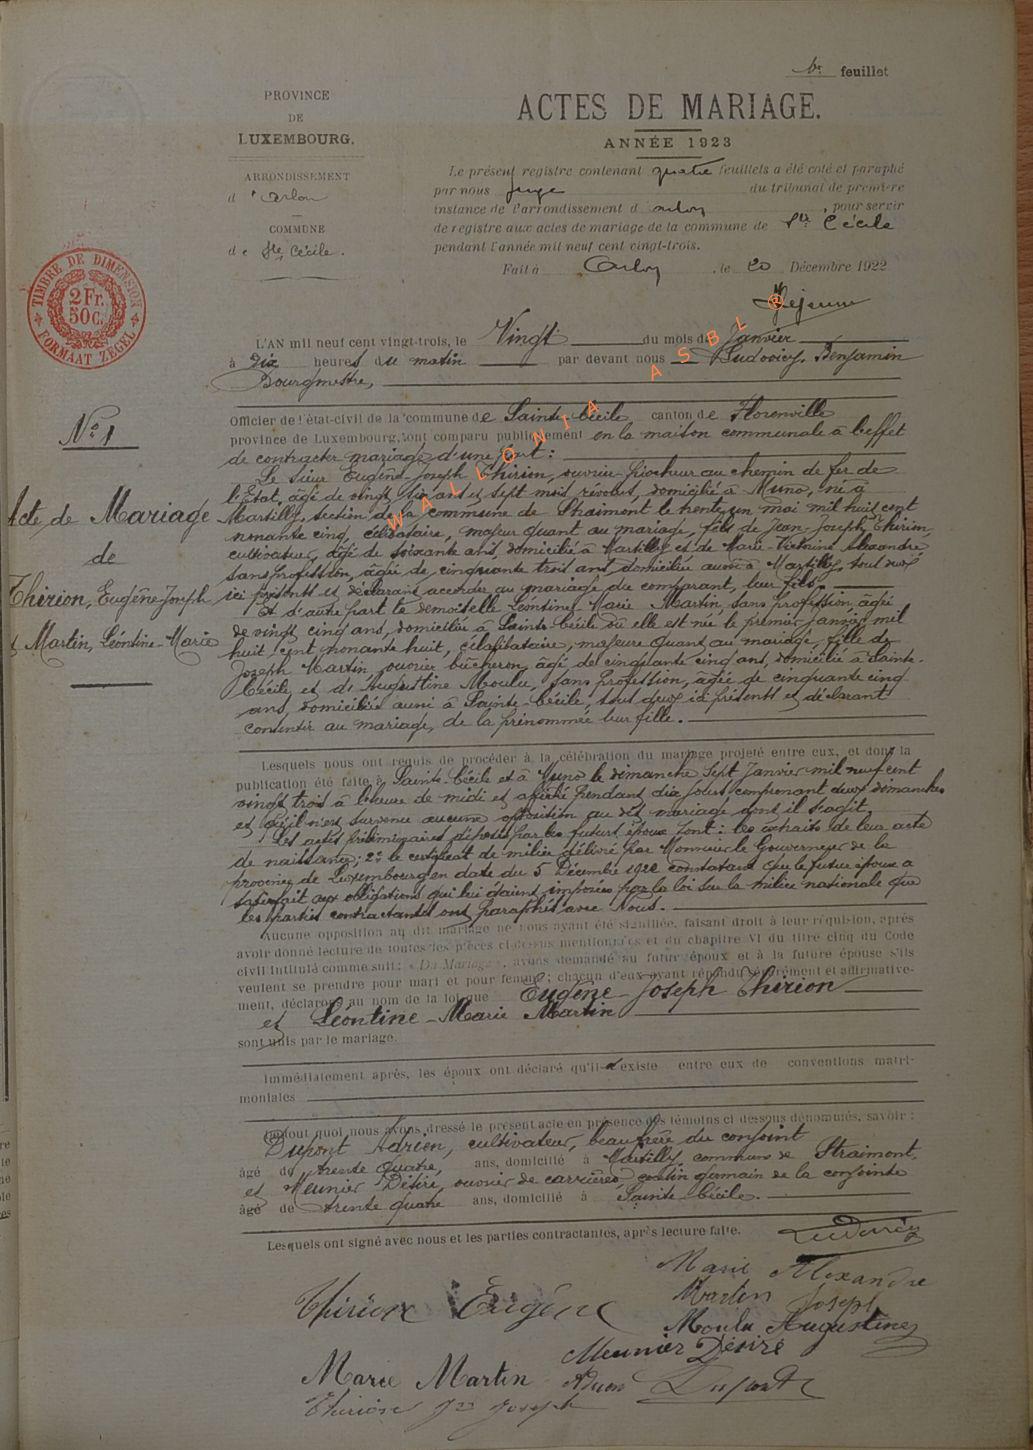 1er feuillet
PROVINCE
DE
LUXEMBOURG.
ARRONDISSEMENT
d'Arlon
COMMUNE
de Ste Cécile.
ACTES DE MARIAGE.
ANNÉE 1923
Le présent registre contenant quatre feuillets a été coté et paraphé
par nous juge du tribunal de première
instance de l'arrondissement d'Arlon, pour servir
de registre aux actes de mariage de la commune de Ste Cécile
pendant l'année mil neuf cent vingt-trois.
Fait à Arlon, le 20 Décembre 1922
Lejeune
TIMBRE DE DIMENSION
2 Fr.
50 c.
FORMAAT ZEGEL
L'AN mil neuf cent vingt-trois, le Vingt du mois de Janvier
à Dix heures du matin par devant nous Ludovicy, Benjamin
Bourgmestre,
Officier de l'état-civil de la commune de Sainte-Cécile canton de Florenville
province de Luxembourg, sont comparu publiquement en la maison communale à l'effet
de contracter mariage d'une part :
Le sieur Eugène-Joseph Thirion, ouvrier piocheur au chemin de fer de
l'Etat, âgé de vingt sept mois révolus, domicilié à Muno, né à
Martilly, section de la commune de Straimont le trente un mai mil huit cent
nonante cinq, célibataire, majeur quant au mariage, fils de Jean-Joseph Thirion,
cultivateur, âgé de soixante ans, domicilié à Martilly et de Marie-Victorine Alexandre
sans profession, âgée de cinquante trois ans domiciliée aussi à Martilly, tous deux
ici présents et déclarant accorder au mariage du comparant, leur fils.
Et d'autre part la demoiselle Léontine-Marie Martin, sans profession, âgée
de vingt cinq ans, domiciliée à Sainte-Cécile où elle est née le premier janvier mil
huit cent nonante huit, célibataire, majeure quant au mariage, fille de
Joseph Martin, ouvrier bûcheron, âgé de cinquante cinq ans, domicilié à Sainte-
Cécile, et de Augustine Moulu, sans profession, âgée de cinquante cinq
ans, domiciliée aussi à Sainte-Cécile, tous deux ici présents et déclarant
consentir au mariage, de la prénommée leur fille.
N° 1
Acte de Mariage
de
Thirion, Eugène-Joseph
et Martin, Léontine-Marie
Lesquels nous ont requis de procéder à la célébration du mariage projeté entre eux, et dont la
publication été faite à Sainte-Cécile et à Muno le dimanche sept Janvier mil neuf cent
vingt trois à l'heure de midi et affiché pendant dix jours comprenant deux dimanches
et qu'il n'est survenu aucune opposition au dit mariage dont il s'agit.
Les actes préliminaires déposés par les futurs époux sont : les extraits de leur acte
de naissance ; 2° le certificat de milice délivré par Monsieur le Gouverneur de la
province de Luxembourg en date du 5 Décembre 1922 constatant que le futur époux a
satisfait aux obligations qui lui étaient imposées par la loi sur la milice nationale que
les parties contractantes ont paraphés avec Nous.
Aucune opposition au dit mariage ne nous ayant été signifiée, faisant droit à leur réquision, après
avoir donné lecture de toutes les pièces ci-dessus mentionnées et du chapitre VI du titre cinq du Code
civil intitulé comme suit : « Du Mariage », avons demandé au futur époux et à la future épouse s'ils
veulent se prendre pour mari et pour femme ; chacun d'eux ayant répondu séparément et affirmative-
ment, déclarons au nom de la loi que Eugène-Joseph Thirion
et Léontine-Marie Martin
sont unis par le mariage.
Immédiatement après, les époux ont déclaré qu'il existe entre eux de conventions matri-
moniales
De tout quoi nous avons dressé le présent acte en présence des témoins ci dessous dénommés, savoir :
Dupont Adrien, cultivateur, beau frère du conjoint
âgé de trente quatre, ans, domicilié à Martilly, commune de Straimont,
et Meunier Désiré, ouvrier de carrières cousin germain de la conjointe
âgé de trente quatre ans, domicilié à Sainte-Cécile.
Lesquels ont signé avec nous et les parties contractantes, après lecture faite.
Ludovicy
Marie Alexandre
Thirion Eugène
Martin Joseph
Moulu Augustine
Meunier Désiré
Marie Martin
Adrien Dupont
Thirion Jn Joseph
WALLONIA ASBL @